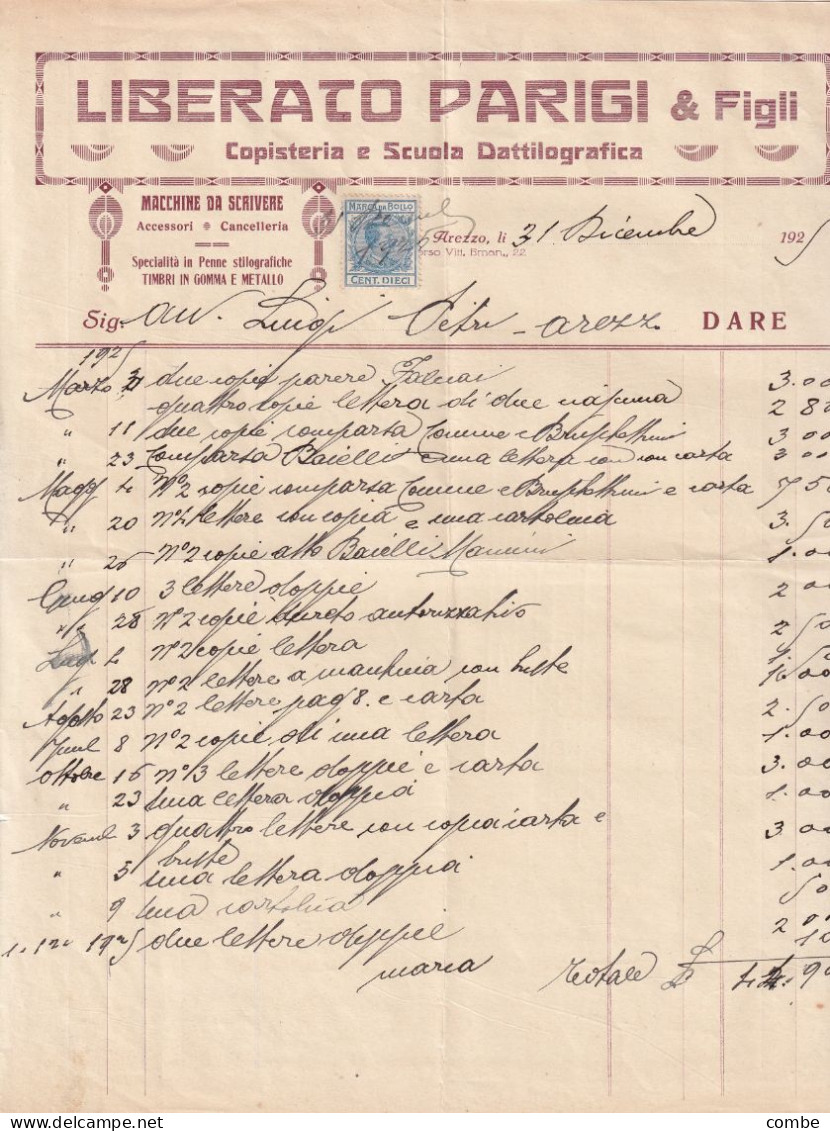 LIBERATO PARIGI & Figli
Copisteria e Scuola Dattilografica
MACCHINE DA SCRIVERE
Accessori • Cancelleria
Specialità in Penne stilografiche
TIMBRI IN GOMMA E METALLO
MARCA DA BOLLO
CENT. DIECI
Arezzo, li 31. Dicembre 1925
Corso Vitt. Eman., 22
Sig. avv. Luigi Petri - Arezz. DARE
1925
Marzo due copie parere 3.00
quattro copie lettera di due 2 80
" 11 due copie comparsa Comune e 3 00
" 23 Comparsa Baielli e una lettera con carta 3 00
Magg N°2 copie comparsa Comune e e carta 7 50
" 20 lettere con copia e una cartolina 3.50
" 26 N°2 copie atto Baielli Mannini 1.00
Giug 10 3 lettere doppie 2 00
" 28 N°2 copie autorizzativo 2 50
Lug. N°2 copie lettera
" 28 N°2 lettere a macchina con buste
Agosto 23 N°2 lettere pag 8. e carta 2.50
8 N°2 copie di una lettera 1.00
Ottobre 16 N°3 lettere doppie e carta 3.00
" 23 una lettera doppia 1.00
Novem 3 quattro lettere con copia carta e 3 00
buste
" 5 una lettera doppia 1.00
" 9 una cartolina 50
1. 12 1925 due lettere doppie 2 00
marca 10
Totale £
combe
combe